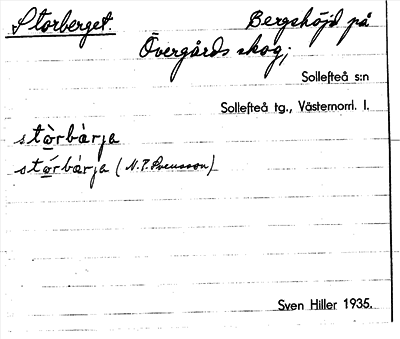 Storberget. Bergshöjd på
Övergårds skog;
Sollefteå s:n
Sollefteå tg., Västernorrl. l.
stòrbàrja
stórbàrja (N.P. Svensson)
Sven Hiller 1935.